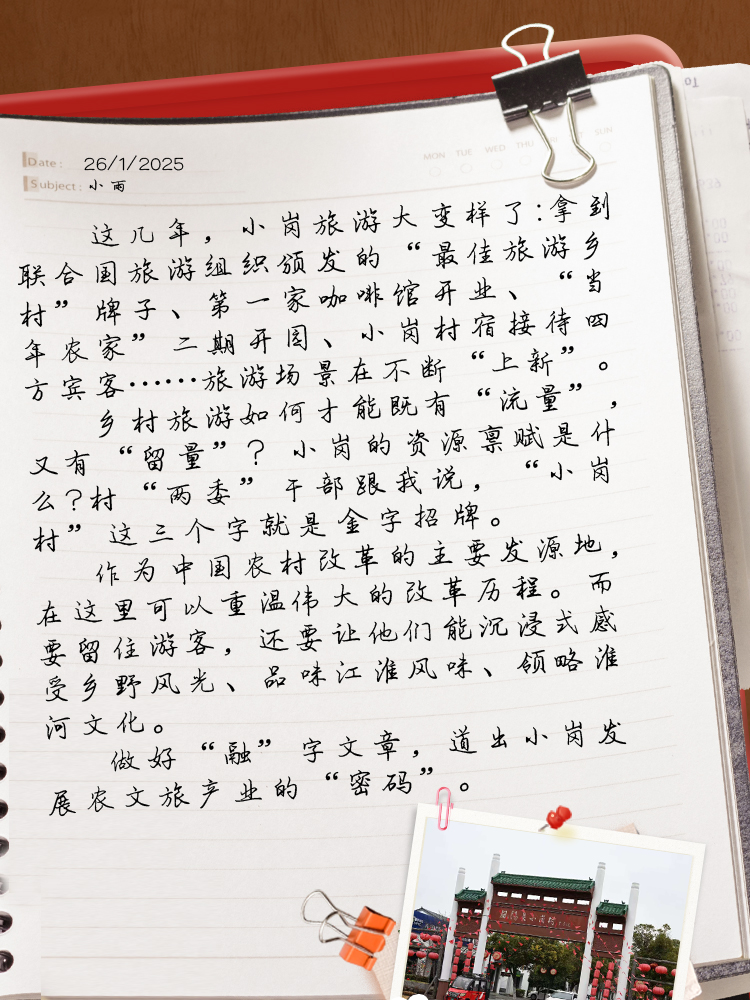 Date: 26/1/2025
MON TUE WED THU SUN
Subject: 小雨
这几年，小岗旅游大变样了：拿到
联合国旅游组织颁发的“最佳旅游乡
村”牌子、第一家咖啡馆开业、“当
年农家”二期开园、小岗村宿接待四
方宾客……旅游场景在不断“上新”。
乡村旅游如何才能既有“流量”，
又有“留量”？小岗的资源禀赋是什
么？村“两委”干部跟我说，“小岗
村”这三个字就是金字招牌。
作为中国农村改革的主要发源地，
在这里可以重温伟大的改革历程。而
要留住游客，还要让他们能沉浸式感
受乡野风光、品味江淮风味、领略淮
河文化。
做好“融”字文章，道出小岗发
展农文旅产业的“密码”。